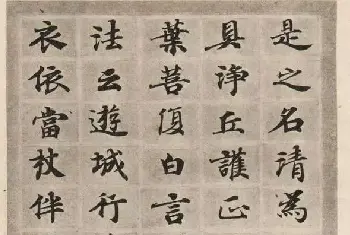 是之名請為
具諍丘護正
葉菩復白言
法云遊城行
衣依當杖伴